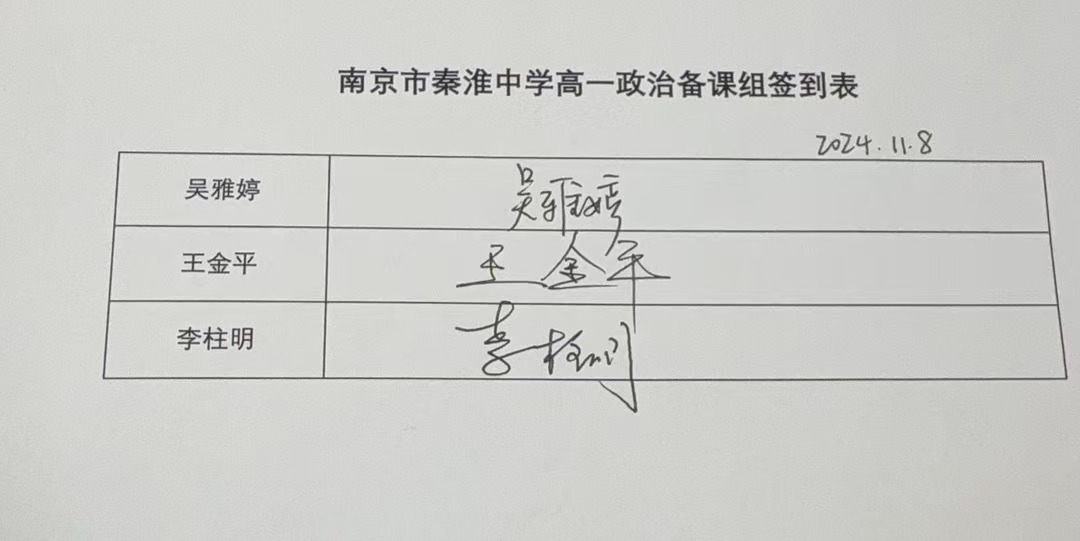 南京市秦淮中学高一政治备课组签到表
2024.11.8
吴雅婷 吴雅婷
王金平 王金平
李柱明 李柱明